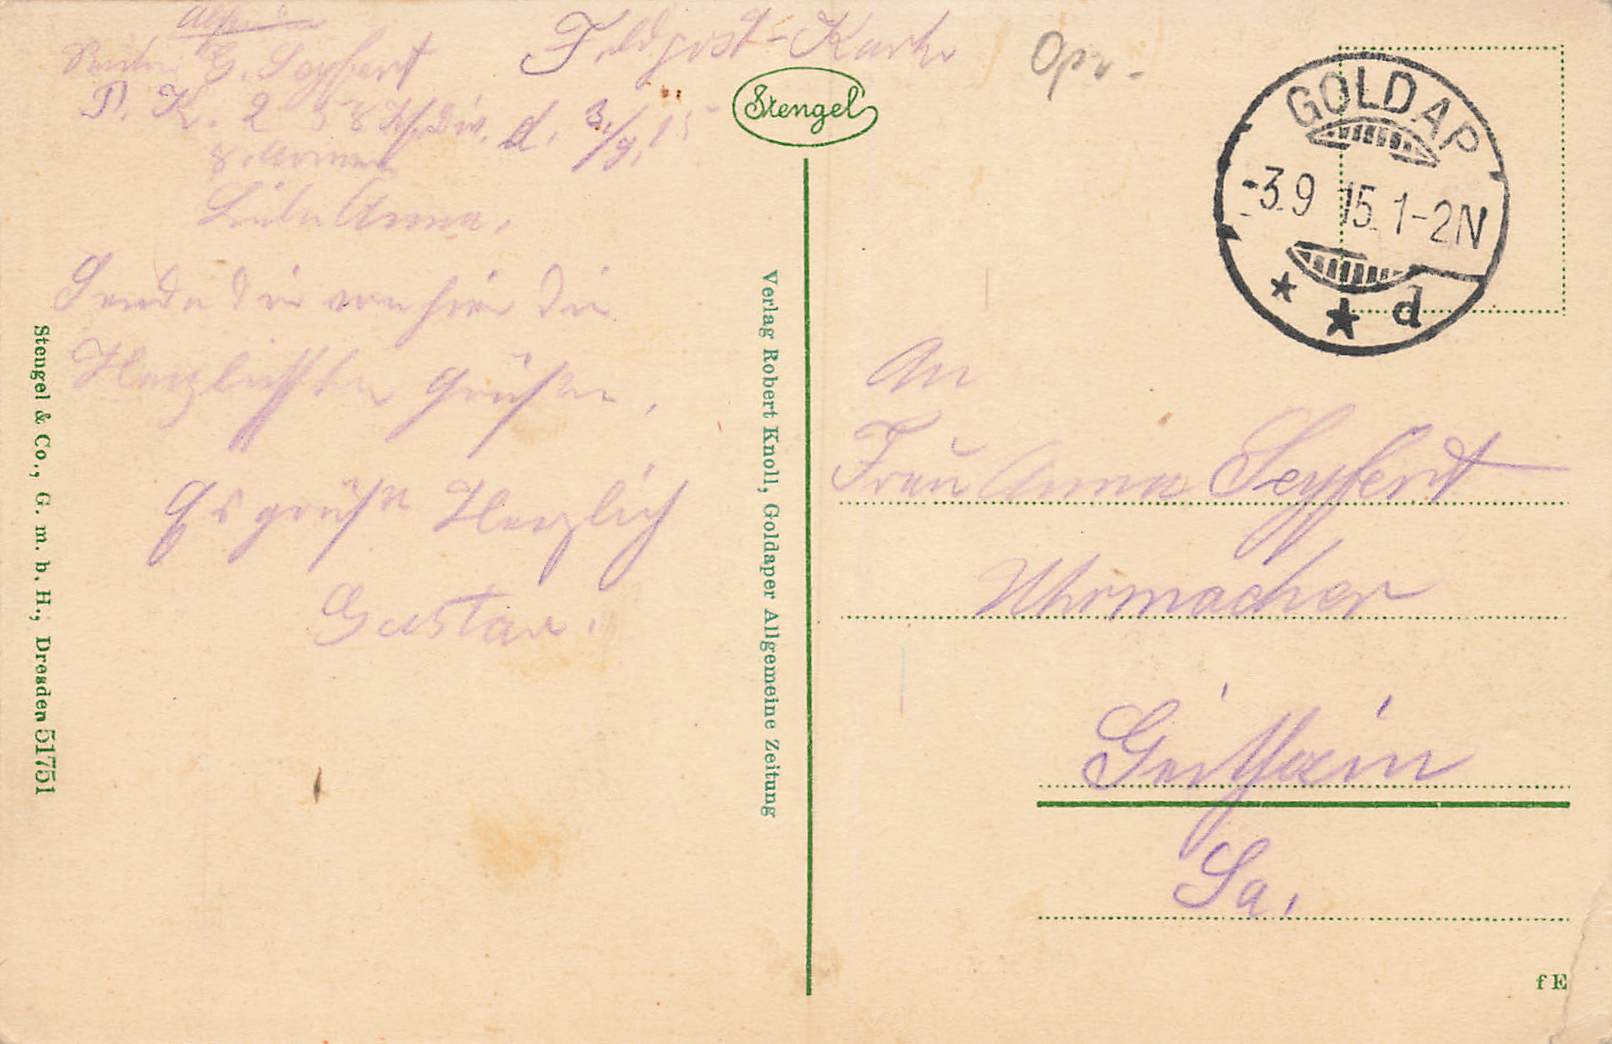 Absender
G. Seyfert
P. K. 2 58 Inf. Div.
8. Armee
Feldpost-Karte
Opr.
d. 3./9. 15
Stengel
GOLDAP
-3.9 15. 1-2N
* * d
Liebe Anna,
Sende Dir von hier die
Herzlichsten Grüße.
Es grüßt Herzlich
Gustav.
Stengel & Co., G. m. b. H., Dresden 51751
Verlag Robert Knoll, Goldaper Allgemeine Zeitung
An
Frau Anna Seyfert
Uhrmacher
Geithain
Sa.
f E